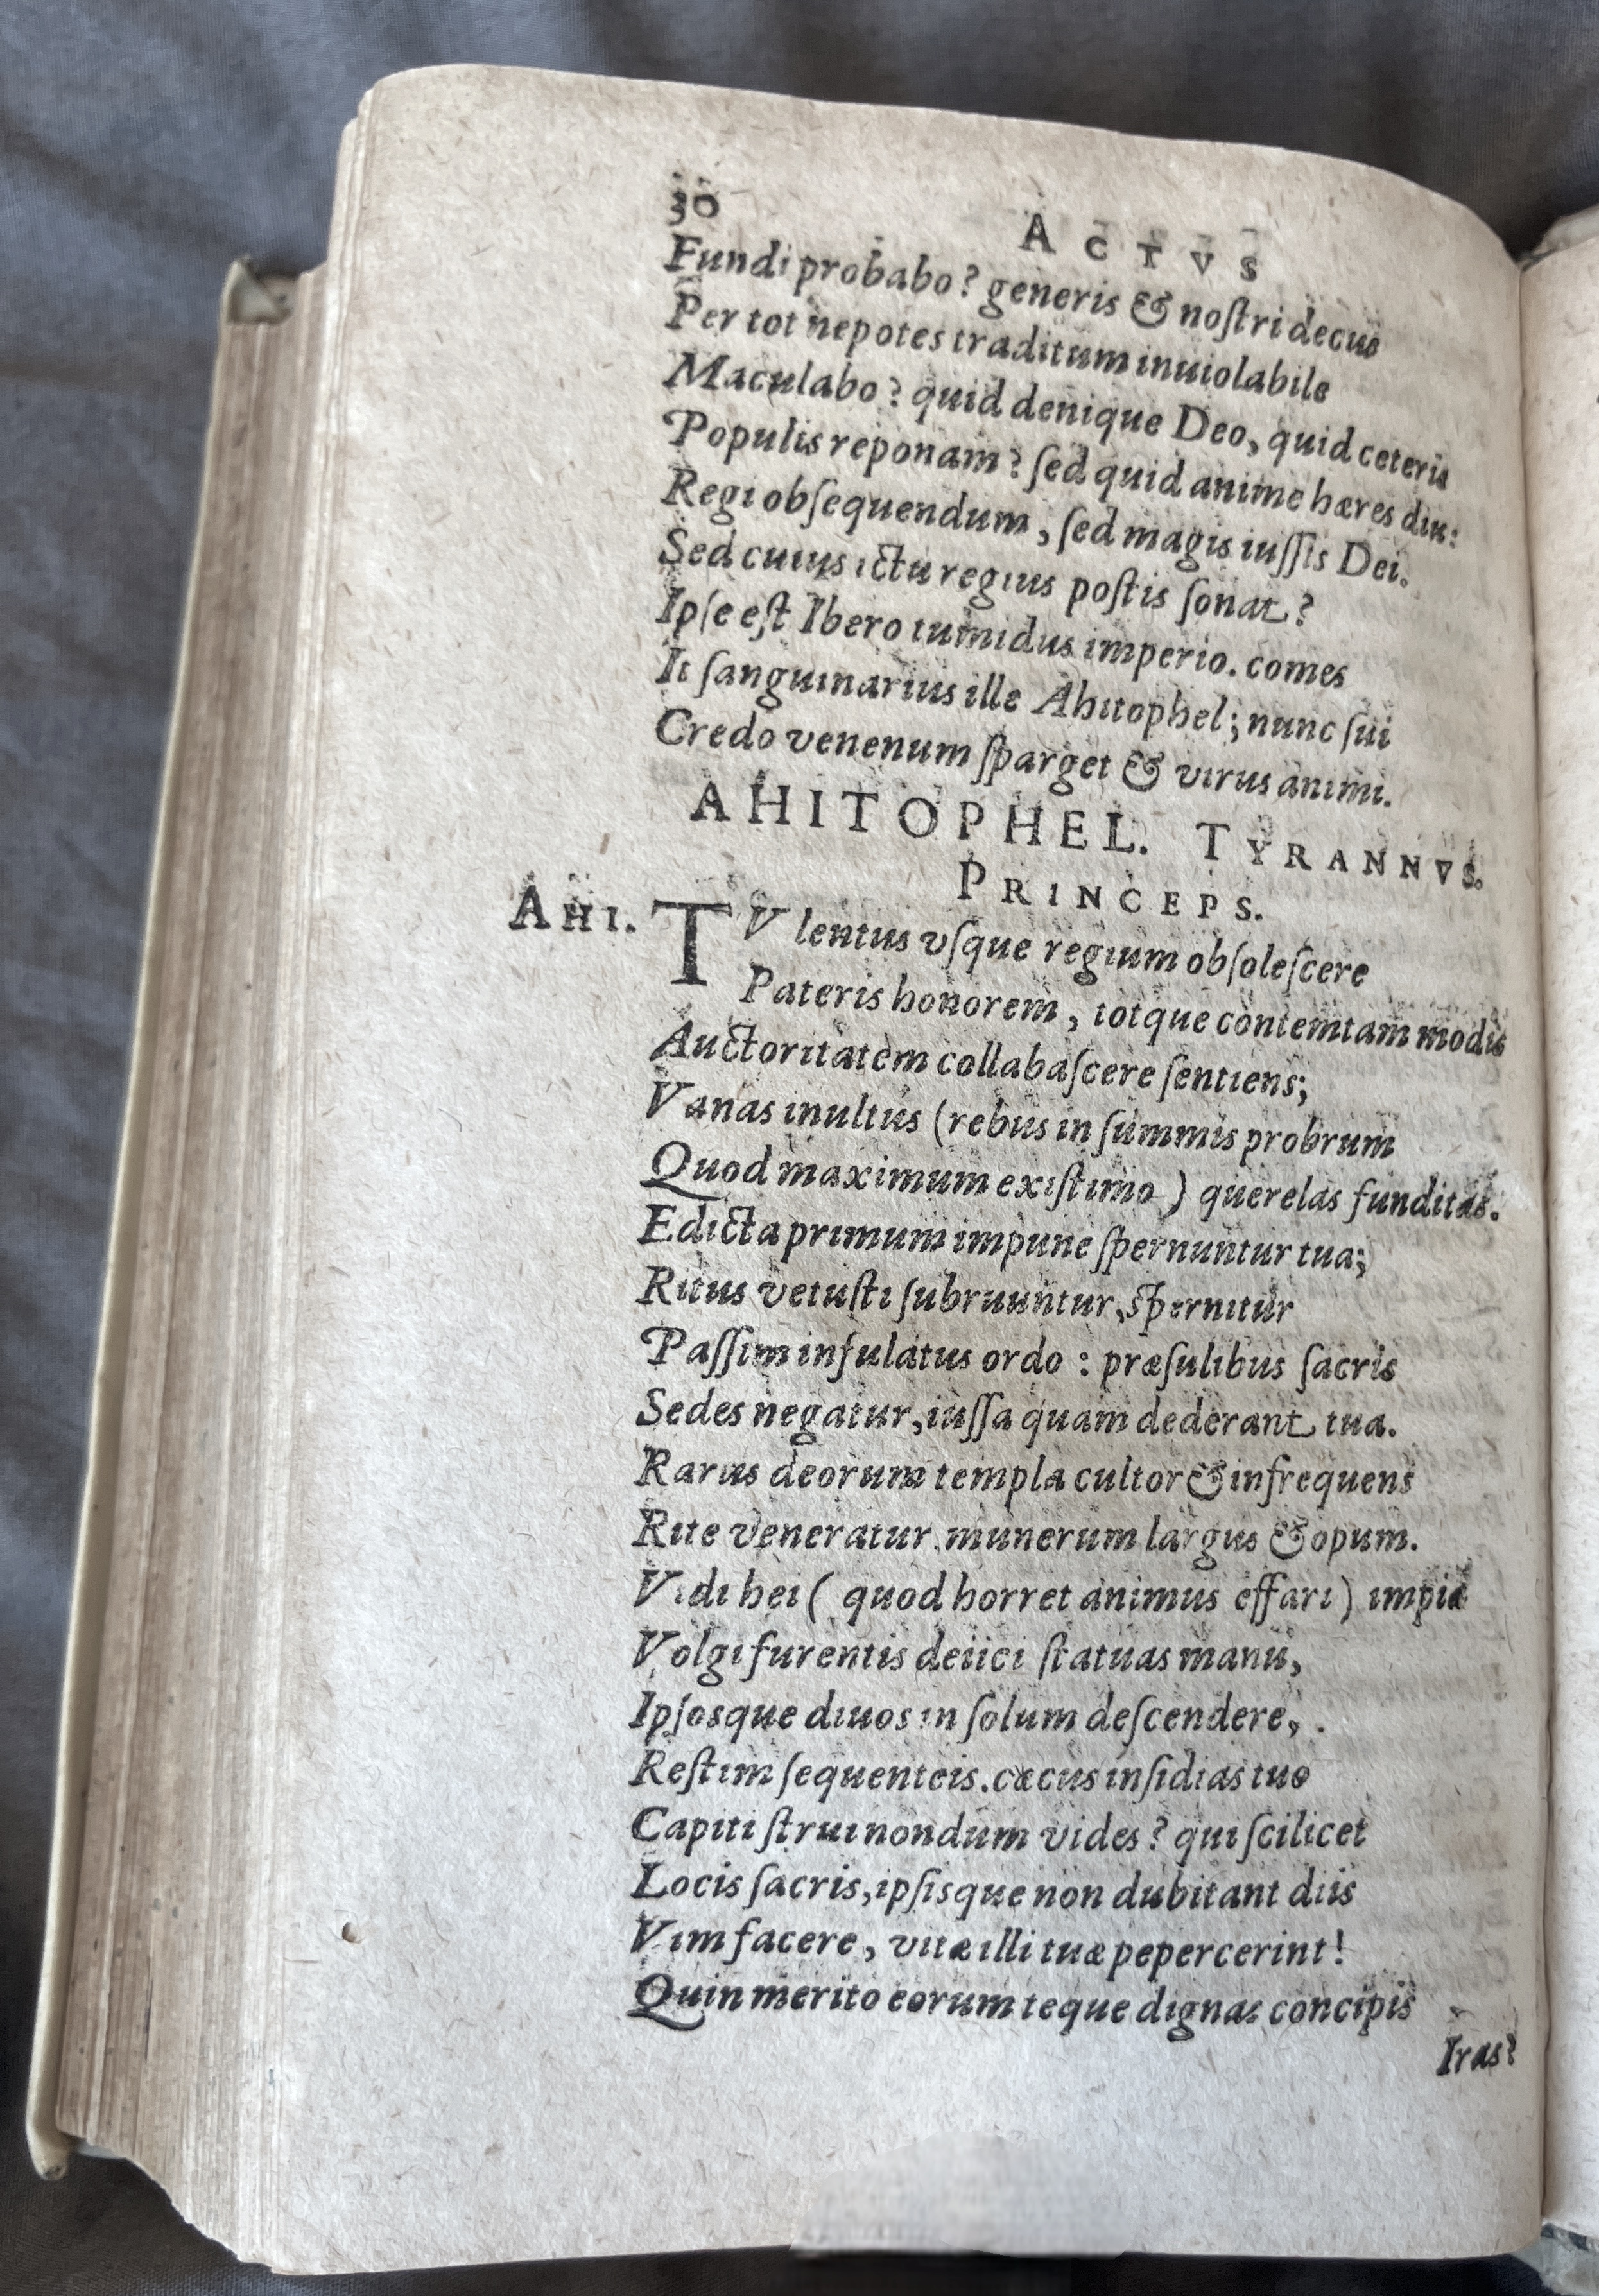 30
ACTVS
Fundi probabo? generis & noſtri decus
Per tot nepotes traditum inuiolabile
Maculabo? quid denique Deo, quid ceteris
Populis reponam? ſed quid anime hæres diu:
Regi obſequendum, ſed magis iuſſis Dei.
Sed cuius ictu regius poſtis ſonat?
Ipſe eſt Ibero tumidus imperio. comes
It ſanguinarius ille Ahitophel; nunc ſui
Credo venenum ſparget & virus animi.
AHITOPHEL. TYRANNVS.
PRINCEPS.
AHI. TV lentus vſque regium obſoleſcere
Pateris honorem, totque contemtam modis
Auctoritatem collabaſcere ſentiens;
Vanas inultus (rebus in ſummis probrum
Quod maximum exiſtimo) querelas funditas.
Edicta primum impune ſpernuntur tua;
Ritus vetuſti ſubruuntur, ſpernitur
Paſſim infulatus ordo: præſulibus ſacris
Sedes negatur, iuſſa quam dederant tua.
Rarus deorum templa cultor & infrequens
Rite veneratur. munerum largus & opum.
Vidi hei ( quod horret animus effari) impia
Volgi furentis deiici ſtatuas manu,
Ipſosque diuos in ſolum deſcendere,
Reſtim ſequenteis. cæcus inſidias tuo
Capiti ſtrui nondum vides? qui ſcilicet
Locis ſacris, ipſisque non dubitant diis
Vim facere, vitæ illi tuæ pepercerint!
Quin merito eorum teque dignas concipis
Iras?